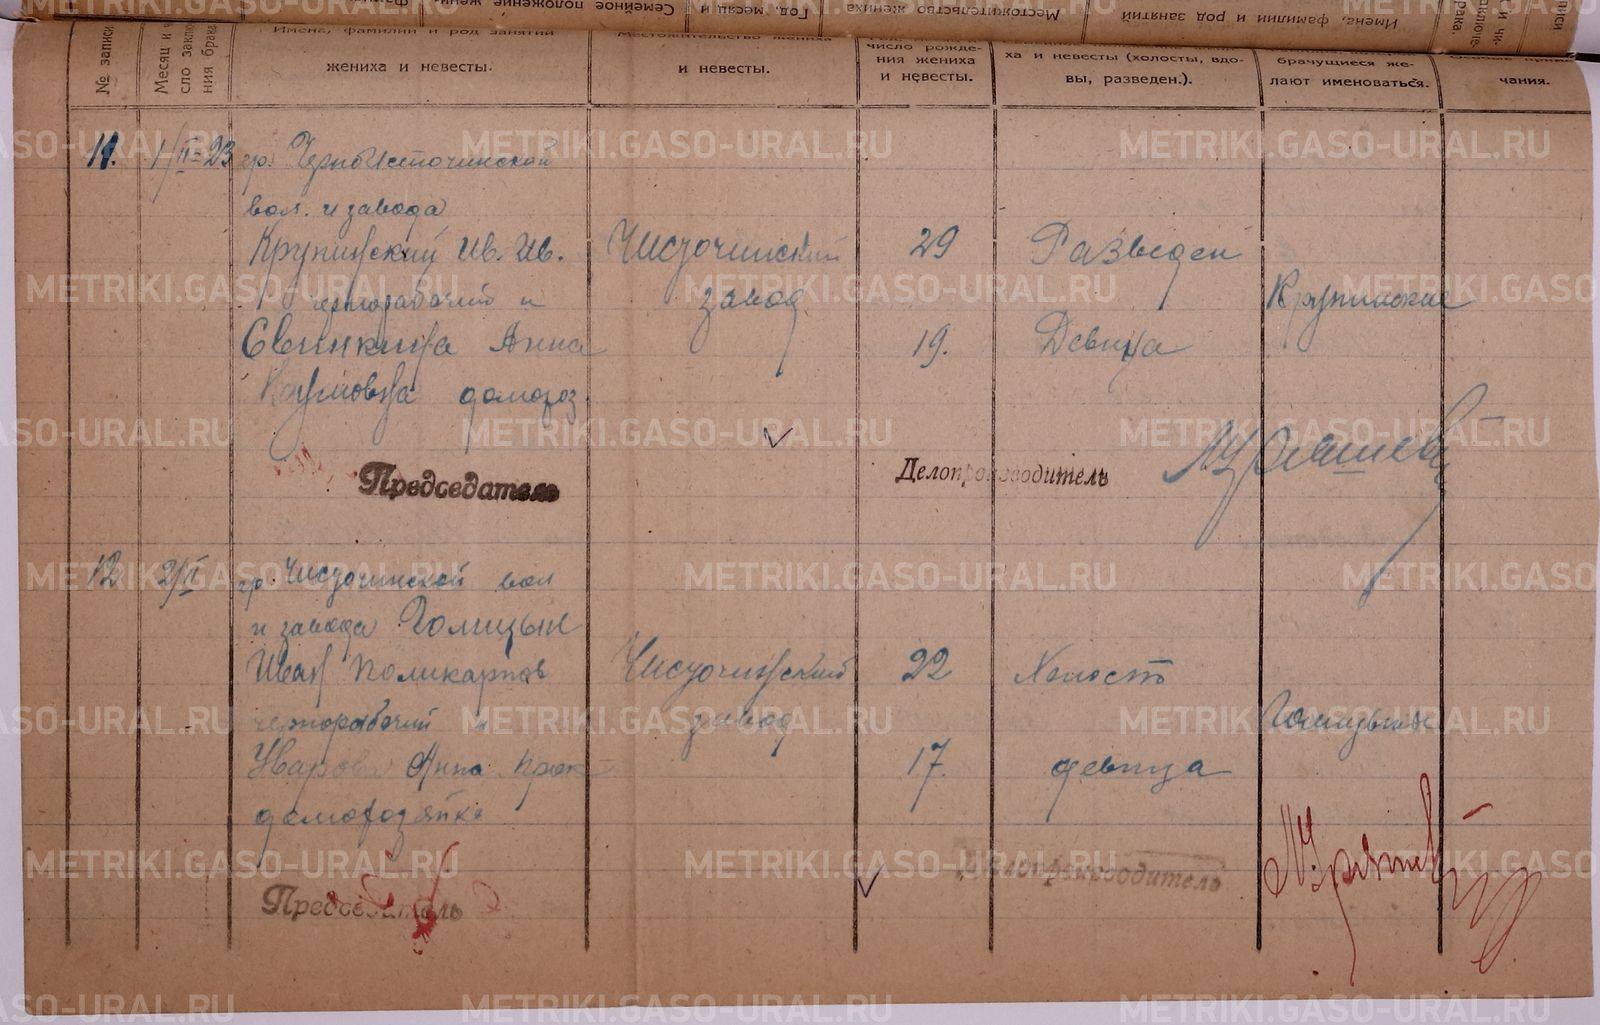 Имена, фамилии и род занятий
Местожительство жениха
Год, месяц и
Семейное положение жени-
№ записи
Месяц и
сло заклю
ния брака
Имена, фамилии и род занятий
жениха и невесты.
Местожительство жениха
и невесты.
число рожде-
ния жениха
и невесты.
ха и невесты (холосты, вдо-
вы, разведен.).
брачущиеся же-
лают именоваться.
чания.
11. 1/II-23 гр. Черноисточинской
вол. и завода
Крупинский Ив. Ив. Чисточинский 29 Разведен
чернорабочий и завод Крупинские
Свинкина Анна 19. Девица
Наумовна домохоз.
Председатель Делопроизводитель
12 2/II гр. Чисточинской вол
и завода Голицын
Иван Поликарпов Чисточинский 22 Холостъ
чернорабочий и завод Голицыны
Уварова Анна 17. девица
домохозяйка
Председатель Делопроизводитель
METRIKI.GASO-URAL.RU